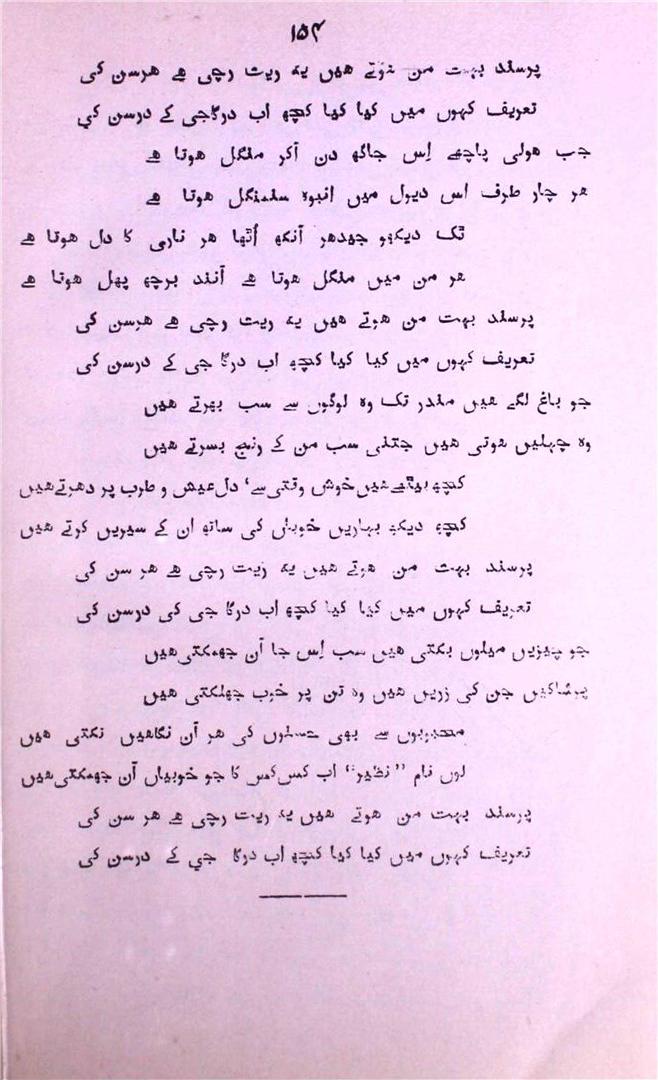 ۱۵۴
پرسند بہت من ہوتے ہیں یہ ریت رچی ہے ہرسن کی
تعریف کہوں میں کیا کیا کچھ اب درگاجی کے درسن کی
جب ہولی پاچھے اِس جاگھ دن آکر منگل ہوتا ہے
ہر چار طرف اس دیول میں انبوہ سلسنگل ہوتا ہے
ٹک دیکھو جیدھر آنکھ اُٹھا ہر ناری کا دل ہوتا ہے
ہر من میں منگل ہوتا ہے آنند برچھ پھل ہوتا ہے
پرسند بہت من ہوتے ہیں یہ ریت رچی ہے ہرسن کی
تعریف کہوں میں کیا کیا کچھ اب درگا جی کے درسن کی
جو باغ لگے ہیں مندر تک وہ لوگوں سے سب بھرتے ہیں
وہ چہلیں ہوتی ہیں جتنی سب من کے رنج بسرتے ہیں
کچھ بیٹھے ہیں خوش وقتی سے، دل عیش و طرب پر دھرتے ہیں
کچھ دیکھ بہاریں خوباں کی ساتھ ان کے سیریں کرتے ہیں
پرسند بہت من ہوتے ہیں یہ ریت رچی ہے ہر سن کی
تعریف کہوں میں کیا کیا کچھ اب درگا جی کی درسن کی
جو چیزیں میلوں بکتی ہیں سب اِس جا آن جھمکتی ہیں
پوشاکیں جن کی زریں ہیں وہ تن پر خوب جھلکتی ہیں
محبوبوں سے بھی حسنوں کی ہر آن نگاہیں تکتی ہیں
لوں نام ”نظیر“ اب کس کس کا جو خوبیاں آن جھمکتی ہیں
پرسند بہت من ہوتے ہیں یہ ریت رچی ہے ہر سن کی
تعریف کہوں میں کیا کیا کچھ اب درگا جی کے درسن کی